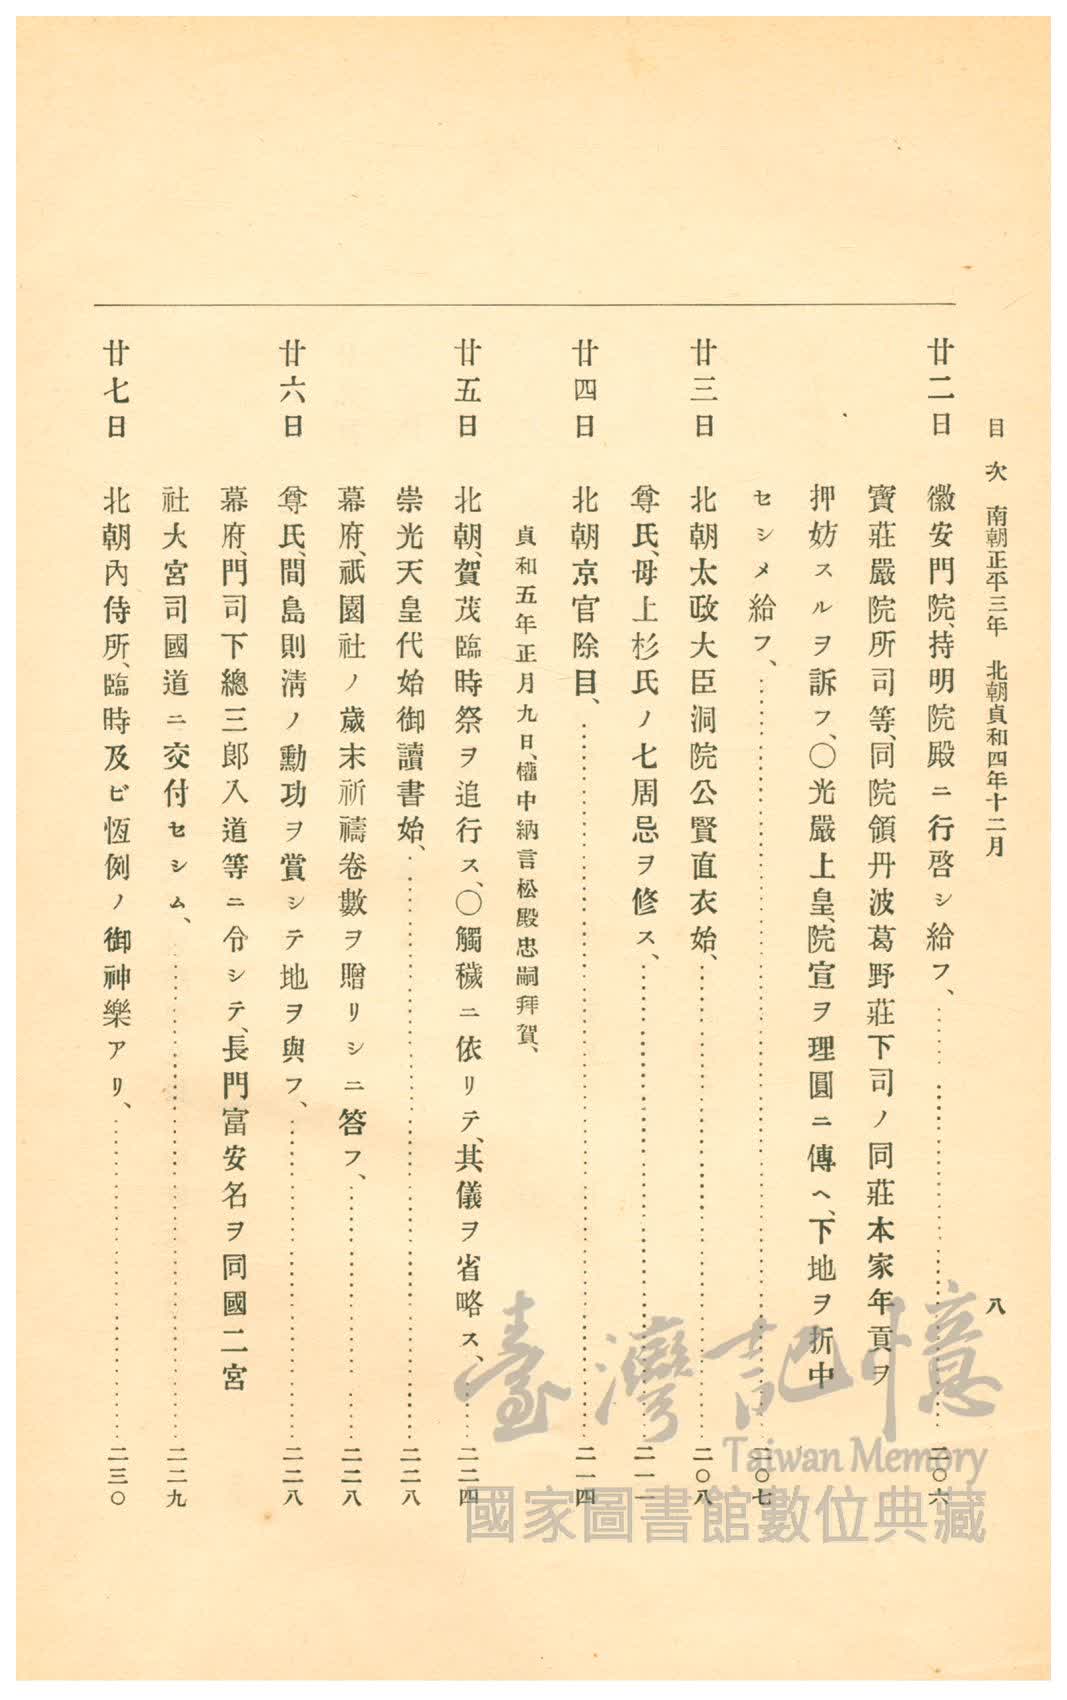 目次　南朝正平三年　北朝貞和四年十二月　八
廿二日　徽安門院、持明院殿ニ行啓シ給フ、……二〇六
寶莊嚴院所司等、同院領丹波葛野莊下司ノ同莊本家年貢ヲ
押妨スルヲ訴フ、〇光嚴上皇、院宣ヲ理圓ニ傳ヘ、下地ヲ折中
セシメ給フ、……二〇七
廿三日　北朝太政大臣洞院公賢直衣始、……二〇八
尊氏、母上杉氏ノ七周忌ヲ修ス、……二一一
廿四日　北朝京官除目、……二一四
貞和五年正月九日、權中納言松殿忠嗣拜賀、
廿五日　北朝、賀茂臨時祭ヲ追行ス、〇觸穢ニ依リテ、其儀ヲ省略ス、……二二四
崇光天皇代始御讀書始、……二二八
幕府、祇園社ノ歲末祈禱卷數ヲ贈リシニ答フ、……二二八
廿六日　尊氏、間島則淸ノ勳功ヲ賞シテ地ヲ與フ、……二二八
幕府、門司下總三郎入道等ニ令シテ、長門富安名ヲ同國二宮
社大宮司國道ニ交付セシム、……二二九
廿七日　北朝內侍所、臨時及ビ恆例ノ御神樂アリ、……二三〇
臺灣記憶
Taiwan Memory
國家圖書館數位典藏